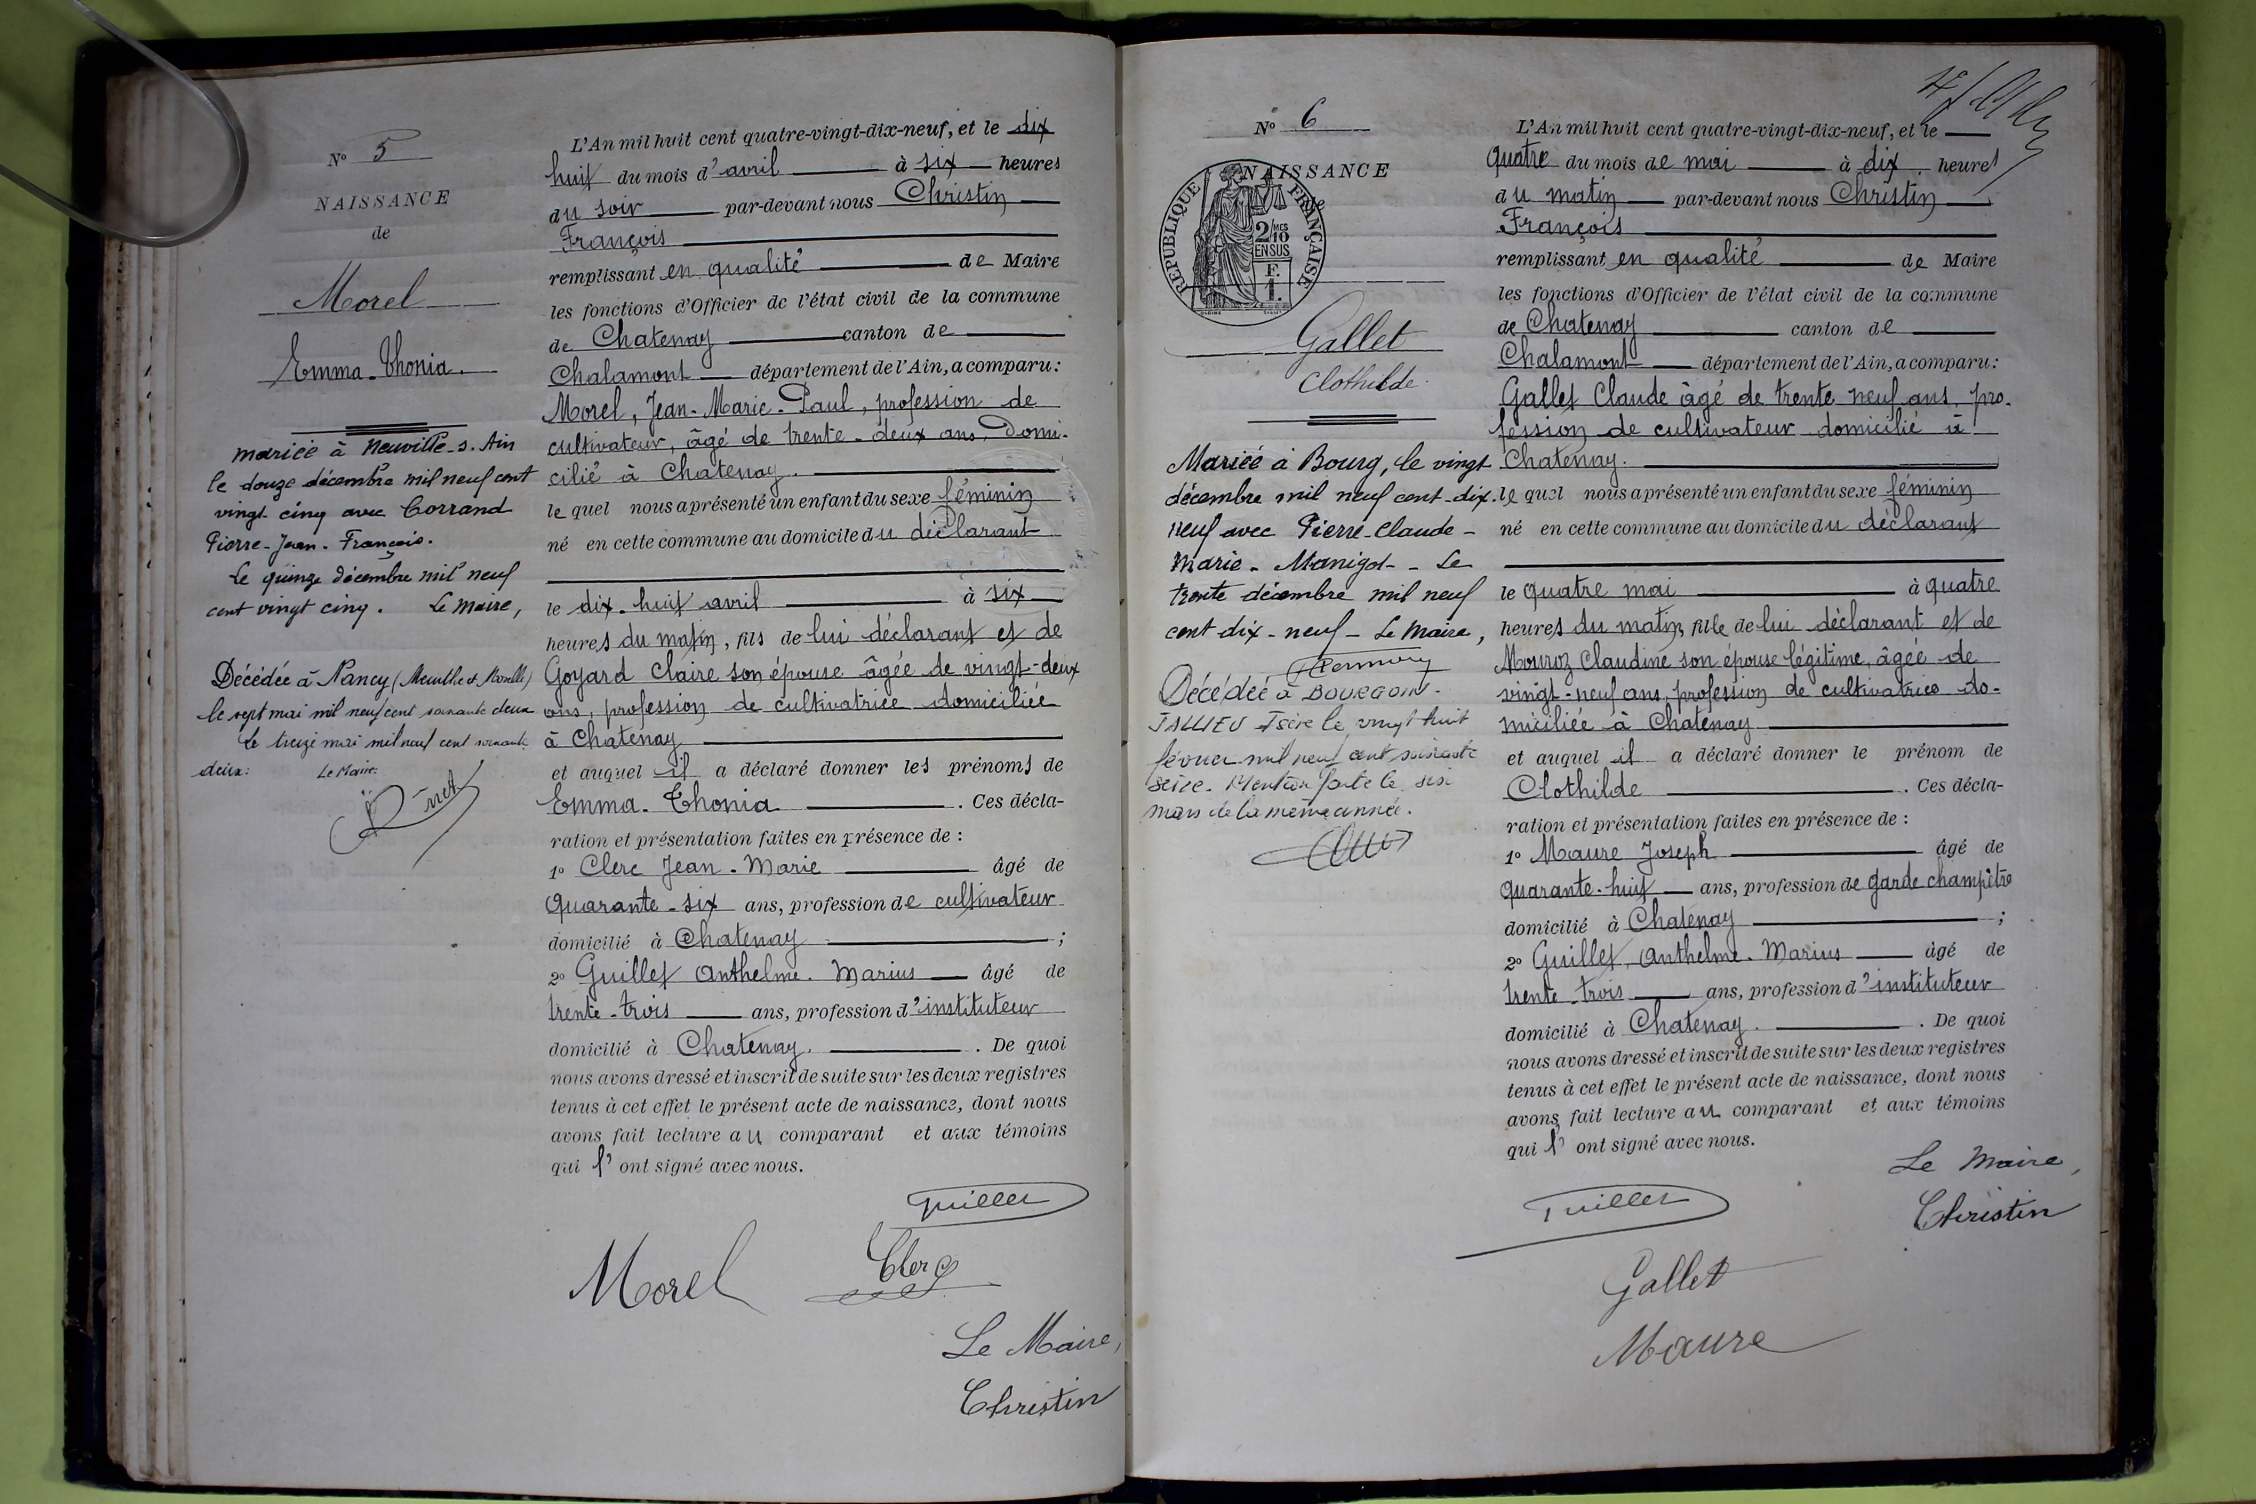 N° 5
NAISSANCE
de
Morel
Emma-Thonia.
mariée à Neuville-s.Ain
le douze décembre mil neuf cent
vingt cinq avec Corrand
Pierre-Jean-François.
Le quinze décembre mil neuf
cent vingt cinq. Le maire,
Décédée à Nancy (Meurthe et Moselle)
le sept mai mil neuf cent soixante deux
Le treize mai mil neuf cent soixante
deux: Le Maire:
L'An mil huit cent quatre-vingt-dix-neuf, et le dix
huit du mois d'avril à six heures
du soir par-devant nous Christin
François
remplissant en qualité de Maire
les fonctions d'Officier de l'état civil de la commune
de Chatenay canton de
Chalamont département de l'Ain, a comparu:
Morel, Jean-Marie-Paul, profession de
cultivateur, âgé de trente-deux ans, domi-
cilié à Chatenay.
le quel nous a présenté un enfant du sexe féminin
né en cette commune au domicile du déclarant
le dix-huit avril à six
heures du matin, fils de lui déclarant et de
Goyard Claire son épouse âgée de vingt-deux
ans, profession de cultivatrice domiciliée
à Chatenay
et auquel il a déclaré donner les prénoms de
Emma-Thonia. Ces décla-
ration et présentation faites en présence de :
1° Clerc Jean-Marie âgé de
quarante-six ans, profession de cultivateur
domicilié à Chatenay ;
2° Guillet Anthelme-Marius âgé de
trente-trois ans, profession d'instituteur
domicilié à Chatenay. De quoi
nous avons dressé et inscrit de suite sur les deux registres
tenus à cet effet le présent acte de naissance, dont nous
avons fait lecture au comparant et aux témoins
qui l'ont signé avec nous.
Guillet
Morel Clerc
Le Maire,
Christin
N° 6
NAISSANCE
de
RÉPUBLIQUE FRANÇAISE
2/10 MES
EN SUS
F.
1.
Gallet
Clothilde.
Mariée à Bourg, le vingt
décembre mil neuf cent-dix-
neuf avec Pierre-Claude-
Marie-Manigot-Le
trente décembre mil neuf
cent dix-neuf-Le Maire,
Décédée à BOURGOIN-
JALLIEU Isère le vingt huit
février mil neuf cent soixante
seize. Mention faite le six
mars de la même année.
L'An mil huit cent quatre-vingt-dix-neuf, et le
quatre du mois de mai à dix heures
du matin par-devant nous Christin
François
remplissant en qualité de Maire
les fonctions d'Officier de l'état civil de la commune
de Chatenay canton de
Chalamont département de l'Ain, a comparu:
Gallet Claude âgé de trente neuf ans, pro-
fession de cultivateur domicilié à
Chatenay.
le quel nous a présenté un enfant du sexe féminin
né en cette commune au domicile du déclarant
le quatre mai à quatre
heures du matin, fille de lui déclarant et de
Mouroz Claudine son épouse légitime, âgée de
vingt-neuf ans, profession de cultivatrice do-
miciliée à Chatenay
et auquel il a déclaré donner le prénom de
Clothilde. Ces décla-
ration et présentation faites en présence de :
1° Maure Joseph âgé de
quarante-huit ans, profession de garde champêtre
domicilié à Chatenay ;
2° Guillet, Anthelme-Marius âgé de
trente-trois ans, profession d'instituteur
domicilié à Chatenay. De quoi
nous avons dressé et inscrit de suite sur les deux registres
tenus à cet effet le présent acte de naissance, dont nous
avons fait lecture au comparant et aux témoins
qui l'ont signé avec nous.
Le Maire,
Guillet Christin
Gallet
Maure